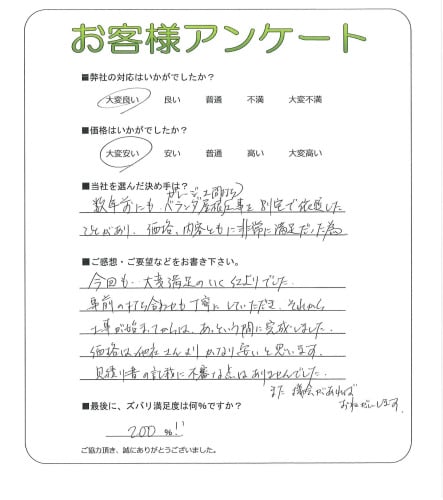 お客様アンケート
■弊社の対応はいかがでしたか?
大変良い 良い 普通 不満 大変不満
■価格はいかがでしたか?
大変安い 安い 普通 高い 大変高い
■当社を選んだ決め手は?
数年前にも ベランダ屋根工事を別宅で依頼した
ことがあり、価格、内容ともに非常に満足だった為
■ご感想・ご要望などをお書き下さい。
今回も、大変満足のいく仕上りでした。
事前の打ち合わせも丁寧にしていただき、それから
工事が始まってからは、あっという間に完成しました。
価格は他社さんよりかなり安いと思います。
見積り書の記載に不審な点はありませんでした。
また機会があれば
おねがいします。
■最後に、ズバリ満足度は何%ですか?
200 %!!
ご協力頂き、誠にありがとうございました。